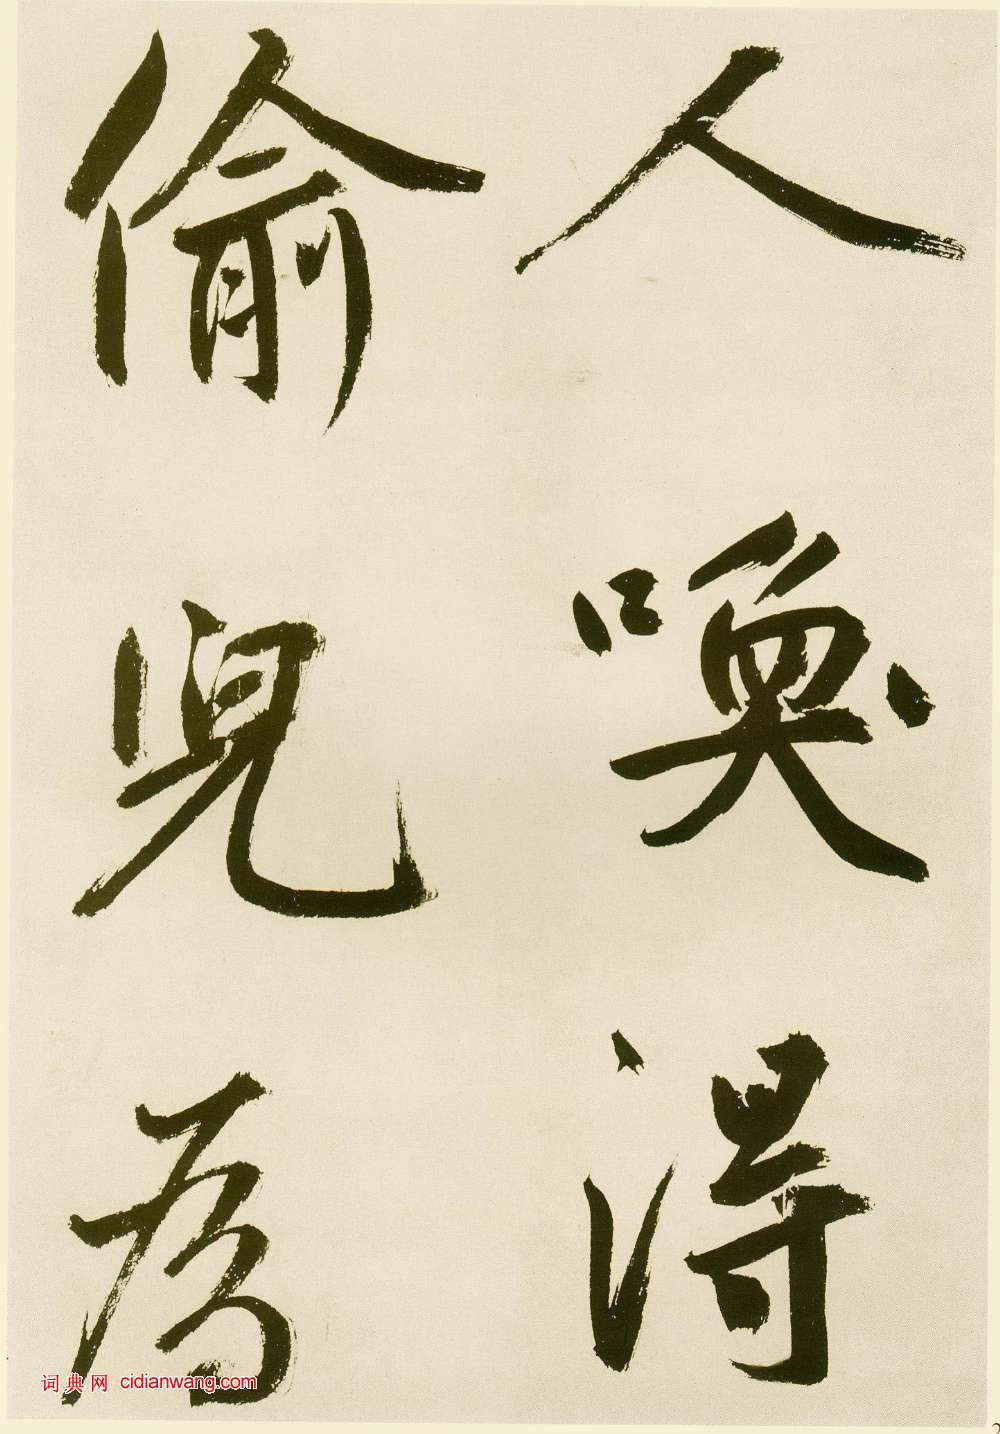 人喚得
偷兒為
词典网 cidianwang.com